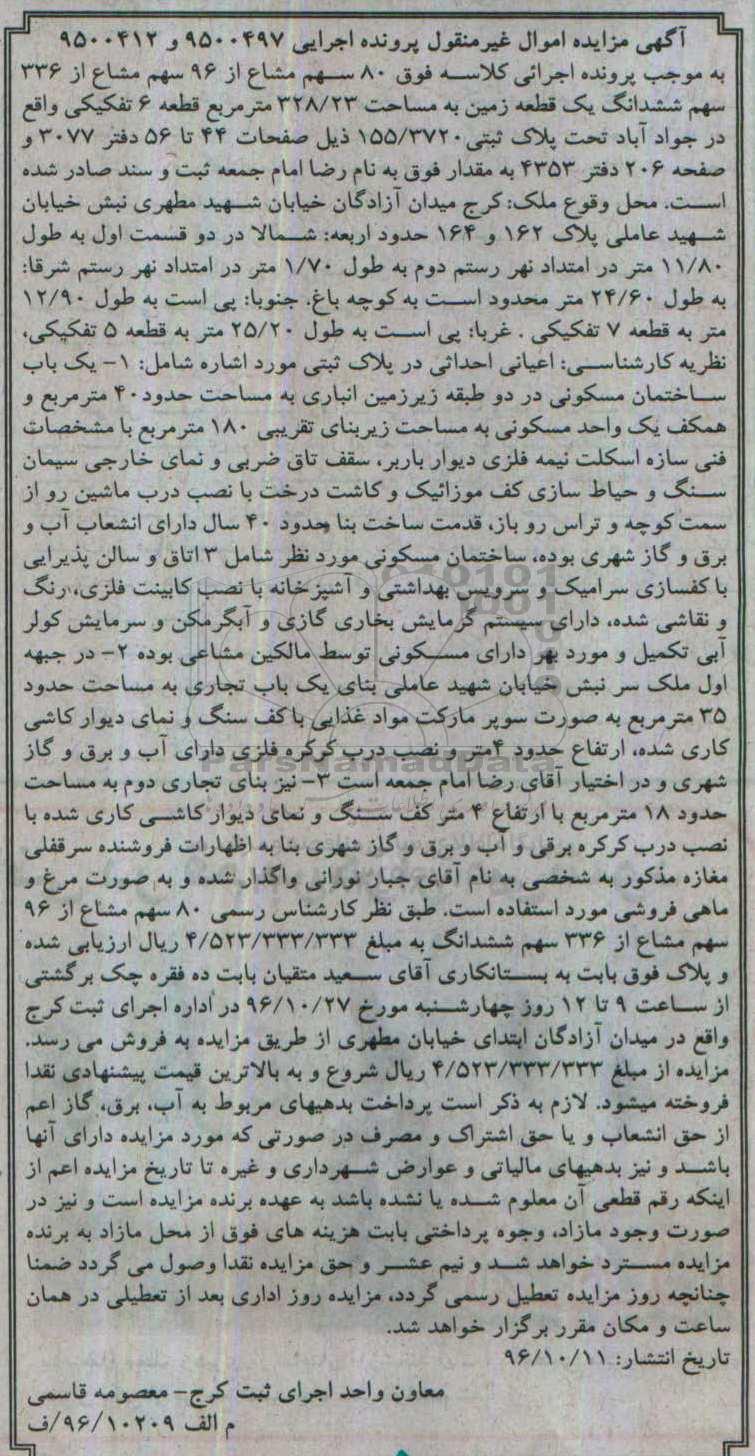 آگهی مزایده اموال غیرمنقول پرونده اجرایی ۹۵۰۰۴۹۷ و ۹۵۰۰۴۱۲
به موجب پرونده اجرائی کلاسه فوق ۸۰ سهم مشاع از ۹۶ سهم مشاع از ۳۳۶
سهم ششدانگ یک قطعه زمین به مساحت ۳۲۸/۲۳ مترمربع قطعه ۶ تفکیکی واقع
در جواد آباد تحت پلاک ثبتی ۱۵۵/۳۷۲۰ ذیل صفحات ۴۴ تا ۵۶ دفتر ۳۰۷۷ و
صفحه ۲۰۶ دفتر ۴۳۵۳ به مقدار فوق به نام رضا امام جمعه ثبت و سند صادر شده
است. محل وقوع ملک: کرج میدان آزادگان خیابان شهید مطهری نبش خیابان
شهید عاملی پلاک ۱۶۲ و ۱۶۴ حدود اربعه: شمالا در دو قسمت اول به طول
۱۱/۸۰ متر در امتداد نهر رستم دوم به طول ۱/۷۰ متر در امتداد نهر رستم شرقا:
به طول ۲۴/۶۰ متر محدود است به کوچه باغ. جنوبا: پی است به طول ۱۲/۹۰
متر به قطعه ۷ تفکیکی . غربا: پی است به طول ۲۵/۲۰ متر به قطعه ۵ تفکیکی،
نظریه کارشناسی: اعیانی احداثی در پلاک ثبتی مورد اشاره شامل: ۱- یک باب
ساختمان مسکونی در دو طبقه زیرزمین انباری به مساحت حدود۴۰ مترمربع و
همکف یک واحد مسکونی به مساحت زیربنای تقریبی ۱۸۰ مترمربع با مشخصات
فنی سازه اسکلت نیمه فلزی دیوار باربر، سقف تاق ضربی و نمای خارجی سیمان
سنگ و حیاط سازی کف موزائیک و کاشت درخت با نصب درب ماشین رو از
سمت کوچه و تراس رو باز، قدمت ساخت بنا حدود ۴۰ سال دارای انشعاب آب و
برق و گاز شهری بوده، ساختمان مسکونی مورد نظر شامل ۳ اتاق و سالن پذیرایی
با کفسازی سرامیک و سرویس بهداشتی و آشپزخانه با نصب کابینت فلزی، رنگ
و نقاشی شده، دارای سیستم گرمایش بخاری گازی و آبگرمکن و سرمایش کولر
آبی تکمیل و مورد بهر دارای مسکونی توسط مالکین مشاعی بوده ۲- در جبهه
اول ملک سر نبش خیابان شهید عاملی بنای یک باب تجاری به مساحت حدود
۳۵ مترمربع به صورت سوپر مارکت مواد غذایی با کف سنگ و نمای دیوار کاشی
کاری شده، ارتفاع حدود ۴متر و نصب درب کرکره فلزی دارای آب و برق و گاز
شهری و در اختیار آقای رضا امام جمعه است ۳- نیز بنای تجاری دوم به مساحت
حدود ۱۸ مترمربع با ارتفاع ۴ متر کف سنگ و نمای دیوار کاشی کاری شده با
نصب درب کرکره برقی و آب و برق و گاز شهری بنا به اظهارات فروشنده سرقفلی
مغازه مذکور به شخصی به نام آقای جبار نورانی واگذار شده و به صورت مرغ و
ماهی فروشی مورد استفاده است. طبق نظر کارشناس رسمی ۸۰ سهم مشاع از ۹۶
سهم مشاع از ۳۳۶ سهم ششدانگ به مبلغ ۴/۵۲۳/۳۳۳/۳۳۳ ریال ارزیابی شده
و پلاک فوق بابت به بستانکاری آقای سعید متقیان بابت ده فقره چک برگشتی
از ساعت ۹ تا ۱۲ روز چهارشنبه مورخ ۹۶/۱۰/۲۷ در اداره اجرای ثبت کرج
واقع در میدان آزادگان ابتدای خیابان مطهری از طریق مزایده به فروش می رسد.
مزایده از مبلغ ۴/۵۲۳/۳۳۳/۳۳۳ ریال شروع و به بالاترین قیمت پیشنهادی نقدا
فروخته میشود. لازم به ذکر است پرداخت بدهیهای مربوط به آب، برق، گاز اعم
از حق انشعاب و یا حق اشتراک و مصرف در صورتی که مورد مزایده دارای آنها
باشد و نیز بدهیهای مالیاتی و عوارض شهرداری و غیره تا تاریخ مزایده اعم از
اینکه رقم قطعی آن معلوم شده یا نشده باشد به عهده برنده مزایده است و نیز در
صورت وجود مازاد، وجوه پرداختی بابت هزینه های فوق از محل مازاد به برنده
مزایده مسترد خواهد شد و نیم عشر و حق مزایده نقدا وصول می گردد ضمنا
چنانچه روز مزایده تعطیل رسمی گردد، مزایده روز اداری بعد از تعطیلی در همان
ساعت و مکان مقرر برگزار خواهد شد.
تاریخ انتشار: ۹۶/۱۰/۱۱
معاون واحد اجرای ثبت کرج- معصومه قاسمی
م الف ۹۶/۱۰۲۰۹/ف
ParsNamadData